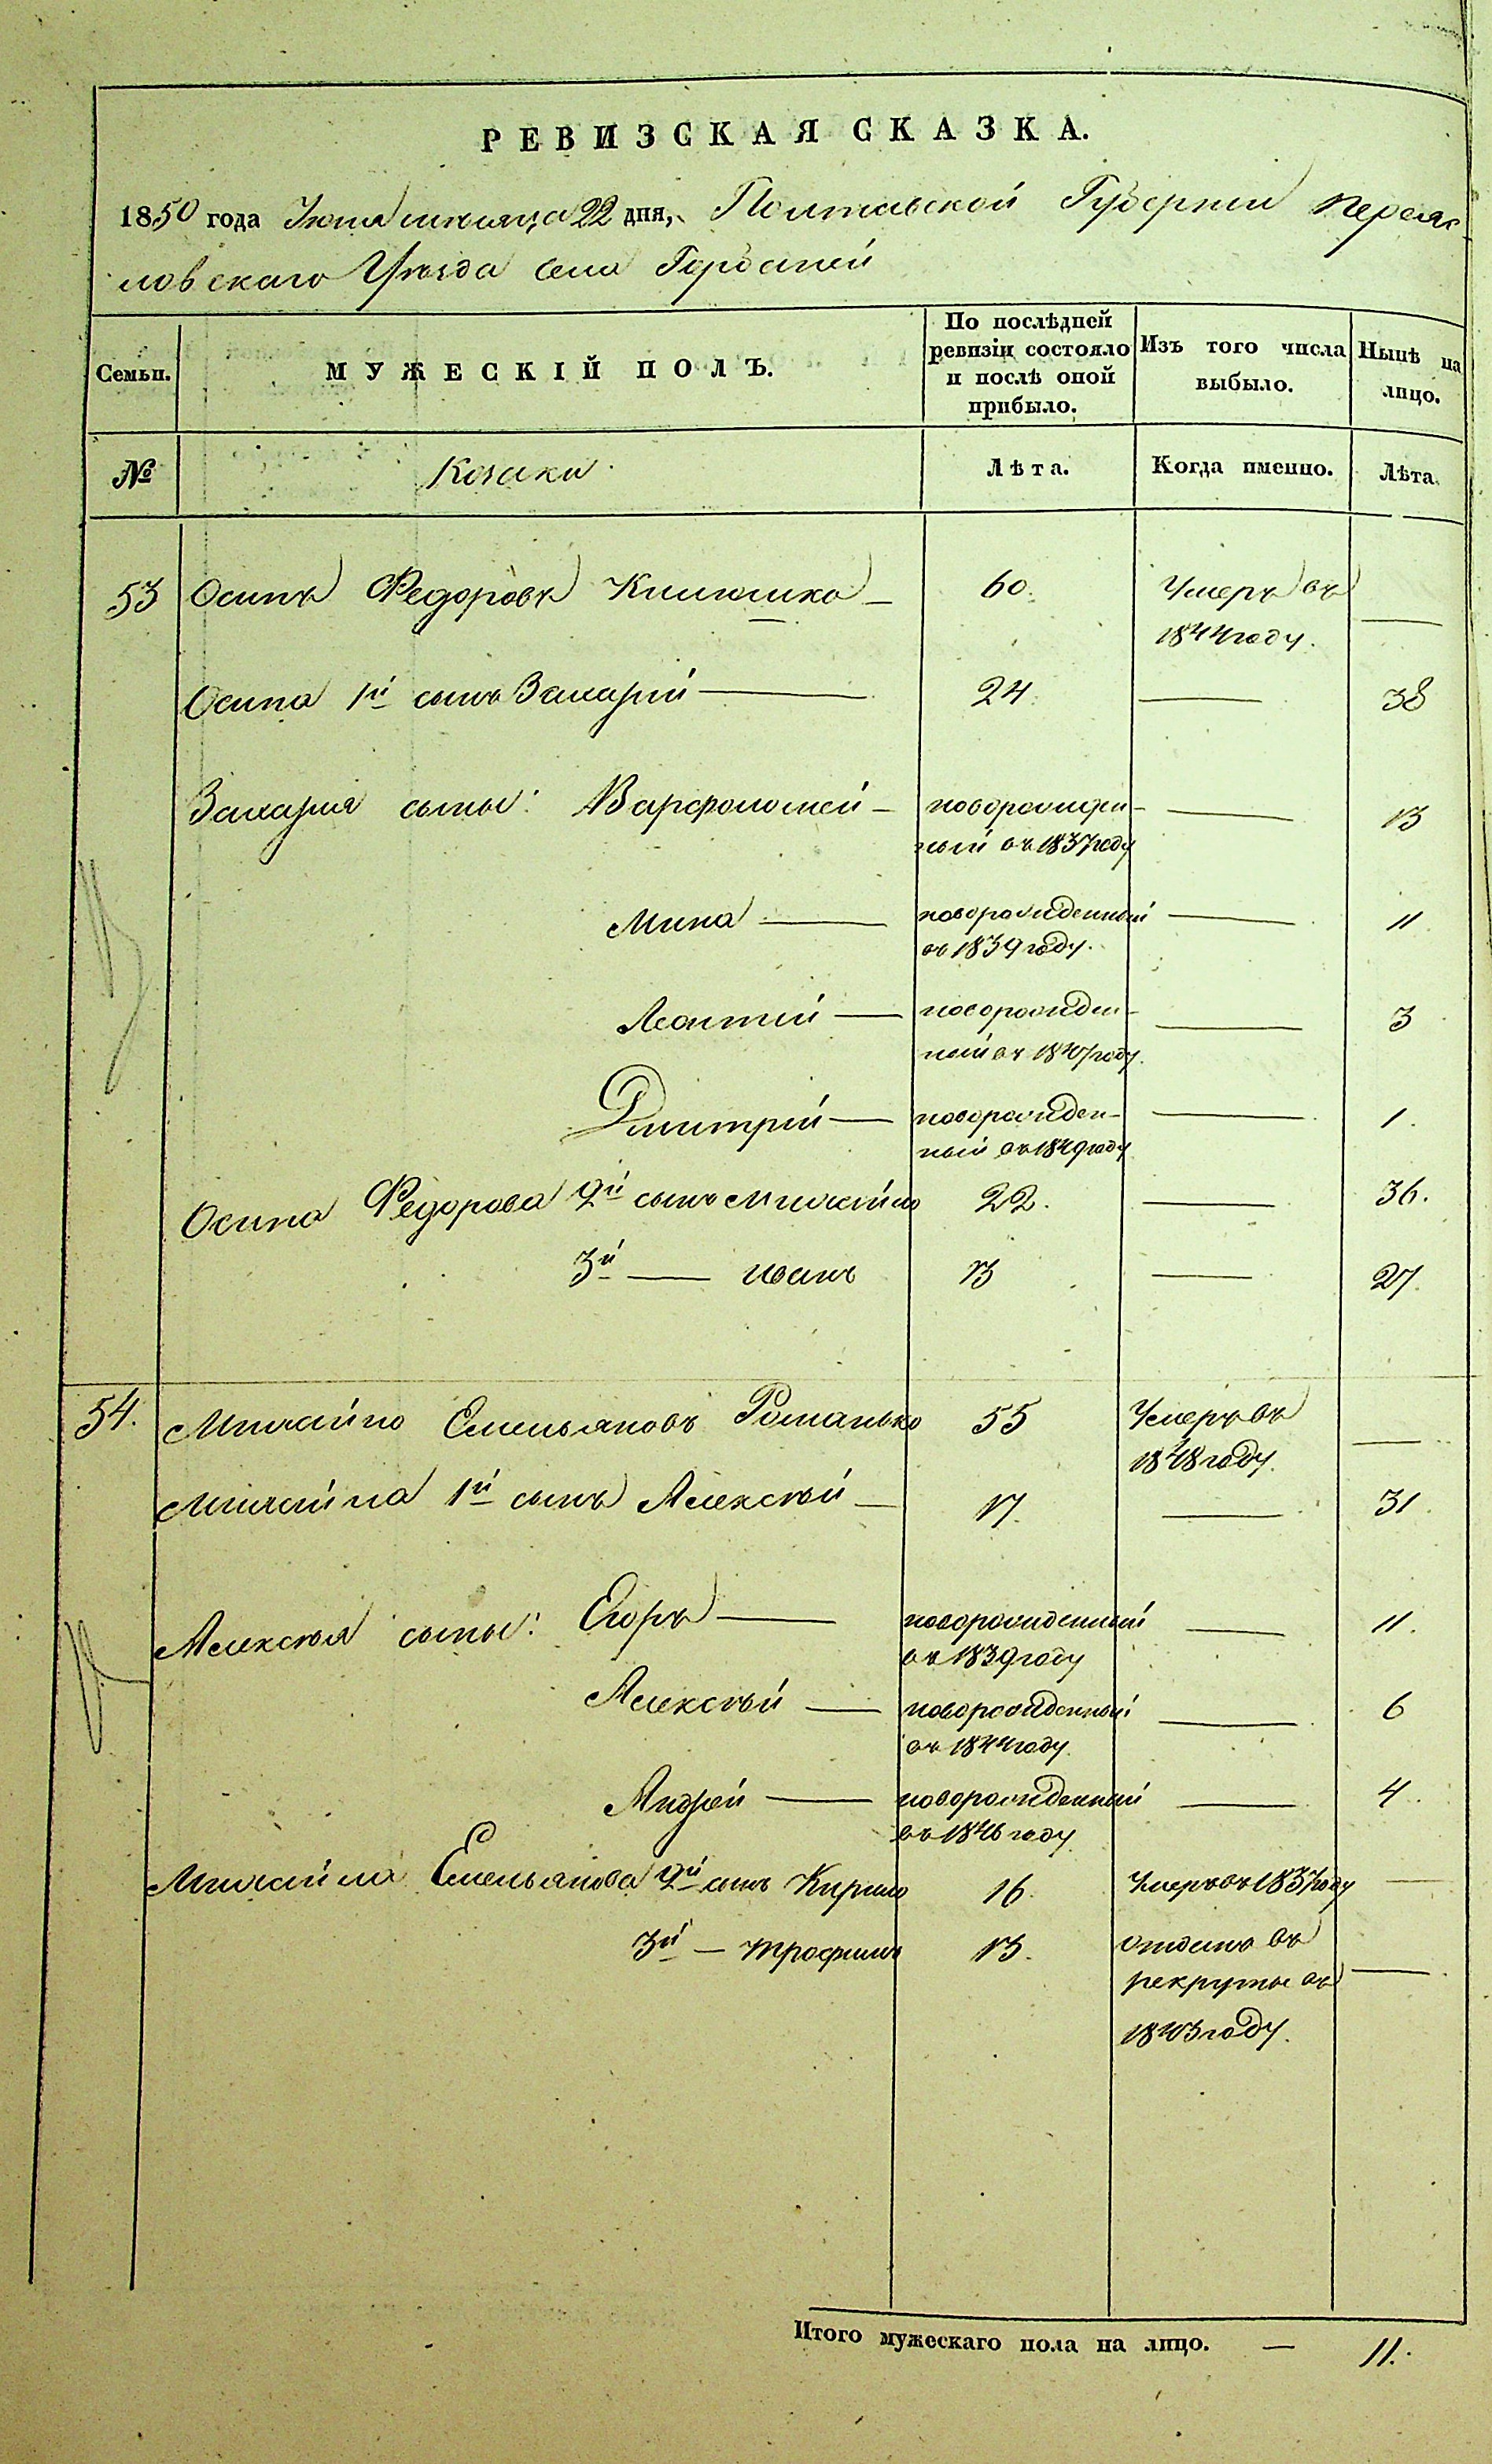 РЕВИЗСКАЯ СКАЗКА.
1850 года Июня месяца 22 дня, Полтавской Губерніи Переяс
ловскаго Уѣзда села Горбаней
Семьи. МУЖЕСКІЙ ПОЛЪ. По послѣдней ревизіи состояло и послѣ оной прибыло. Изъ того числа выбыло. Нынѣ на лицо.
№ Козаки Лѣта. Когда именно. Лѣта.
53 Осипъ Федоровъ 60. Умеръ въ
1844 году. —
Осипа 1й сынъ Захарій — 24. — 38
Захарія сыны: Варфоломей — новорожден-
ный въ 1837 году — 13
Мина — новорожденный
въ 1839 году. — 11
Леонтій — новорожден-
ный въ 1847 году. — 3
Дмитрій — новорожден-
ный въ 1849 году — 1.
Осипа Федорова 2й сынъ Михайло 22. — 36.
3й — Иванъ 13 — 27.
54. Михайло Емельяновъ Романько 55 Умеръ въ
1848 году. —
Михайла 1й сынъ Алексѣй — 17. — 31.
Алексѣя сыны: Егоръ — новорожденный
въ 1839 году — 11.
Алексѣй — новорожденный
въ 1844 году. — 6
Андрей — новорожденный
въ 1846 году — 4.
Михайла Емельянова 2й сынъ Кирило 16. Умеръ въ 1837 году —
3й — Трофимъ 13. отданъ въ
рекруты въ —
1843 году.
Итого мужескаго пола на лицо. — 11.